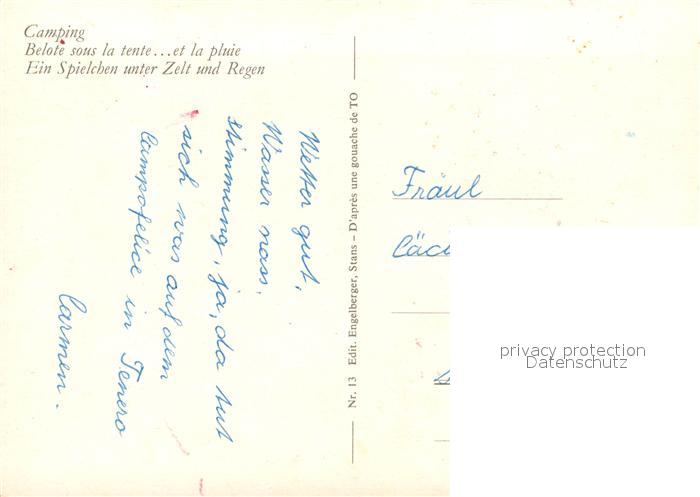 Camping
Belote sous la tente...et la pluie
Ein Spielchen unter Zelt und Regen
Wetter gut,
Wasser nass,
Stimmung, ja, da tut
sich was auf dem
Campofelice in Tenero
Carmen.
Nr. 13 Edit. Engelberger, Stans – D'après une gouache de TO
Fräul
Cäci
privacy protection
Datenschutz